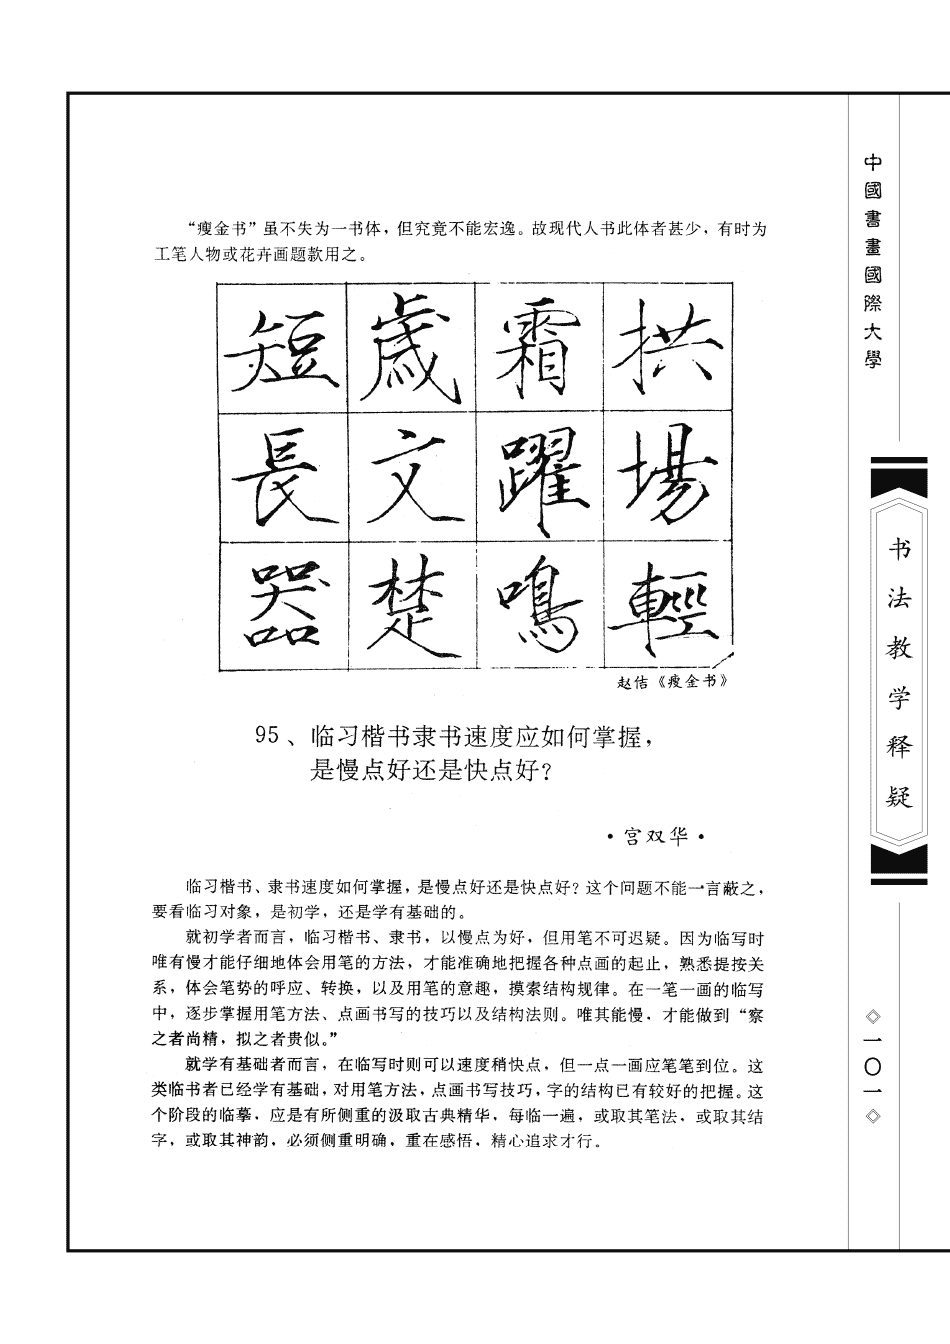 “瘦金书”虽不失为一书体，但究竟不能宏逸。故现代人书此体者甚少，有时为
工笔人物或花卉画题款用之。
短 歲 霜 拱
長 文 躍 場
器 楚 鳴 輕
赵佶《瘦金书》
95、临习楷书隶书速度应如何掌握，
是慢点好还是快点好？
·宫双华·
临习楷书、隶书速度如何掌握，是慢点好还是快点好？这个问题不能一言蔽之，
要看临习对象，是初学，还是学有基础的。
就初学者而言，临习楷书、隶书，以慢点为好，但用笔不可迟疑。因为临写时
唯有慢才能仔细地体会用笔的方法，才能准确地把握各种点画的起止，熟悉提按关
系，体会笔势的呼应、转换，以及用笔的意趣，摸索结构规律。在一笔一画的临写
中，逐步掌握用笔方法、点画书写的技巧以及结构法则。唯其能慢，才能做到“察
之者尚精，拟之者贵似。”
就学有基础者而言，在临写时则可以速度稍快点，但一点一画应笔笔到位。这
类临书者已经学有基础，对用笔方法，点画书写技巧，字的结构已有较好的把握。这
个阶段的临摹，应是有所侧重的汲取古典精华，每临一遍，或取其笔法，或取其结
字，或取其神韵，必须侧重明确，重在感悟，精心追求才行。
中國書畫國際大學
书法教学释疑
◇一〇一◇